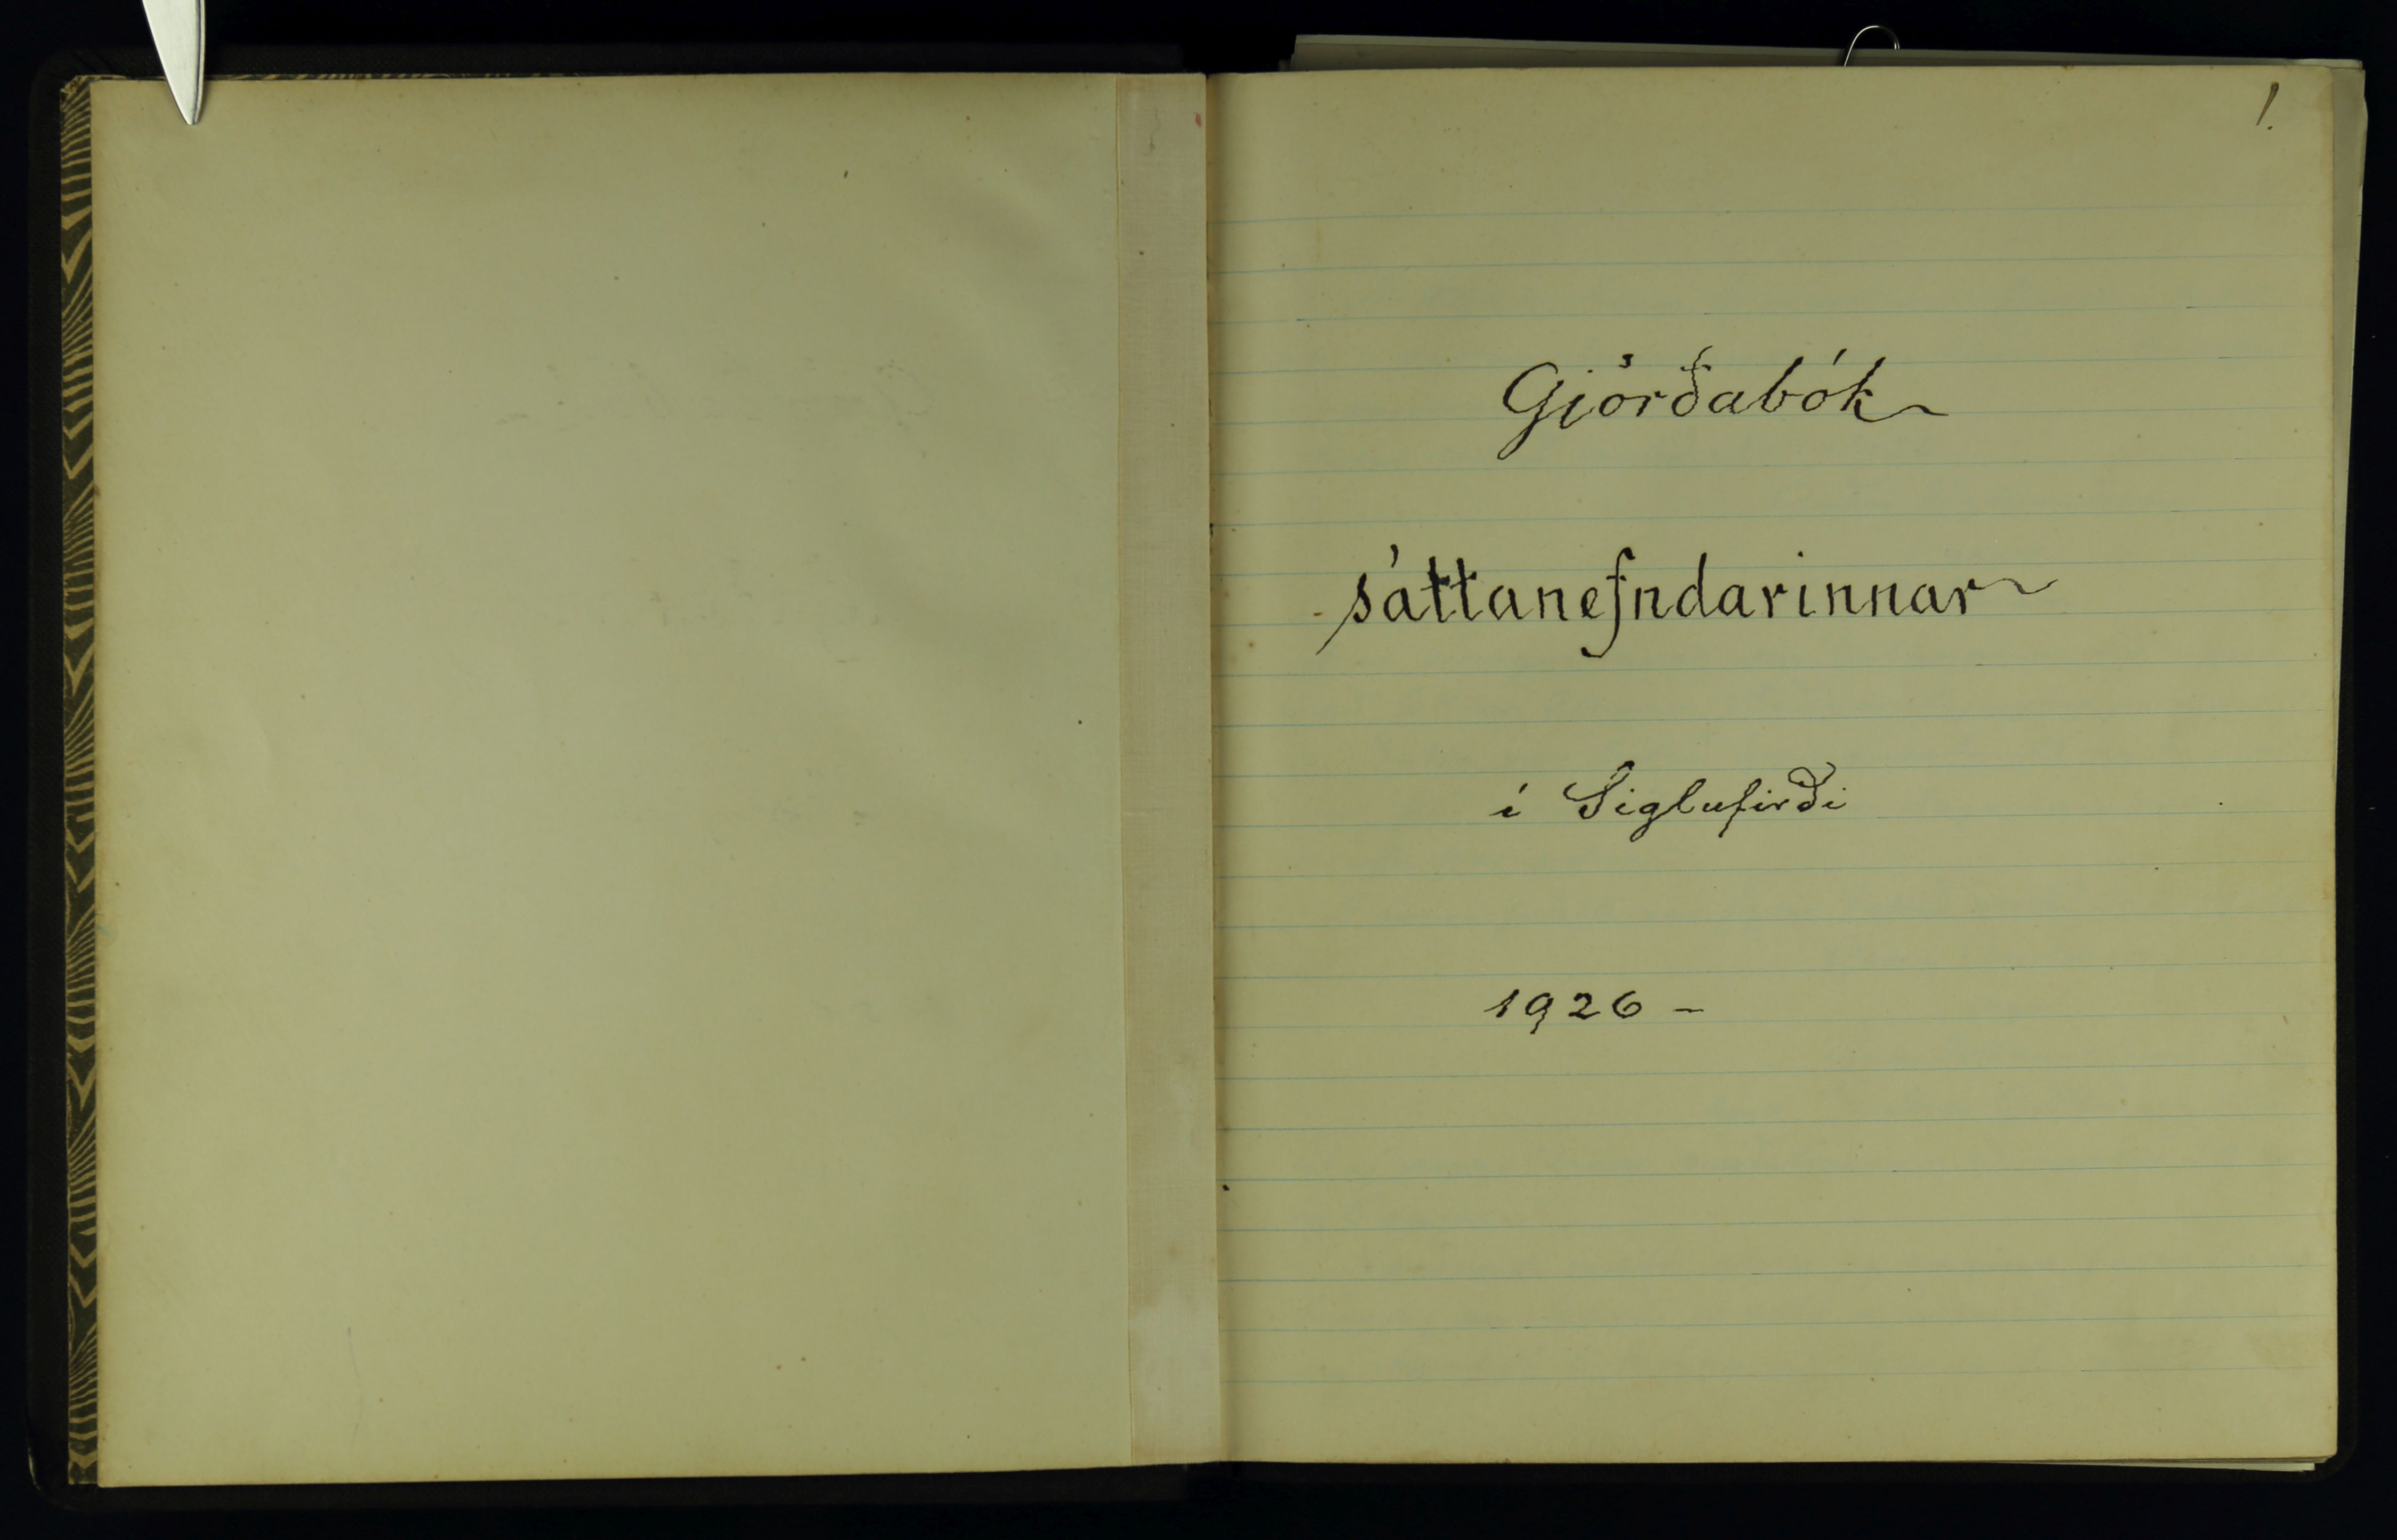 1.
Gjörðabók
sáttanefndarinnar
í Siglufirði
1926 -